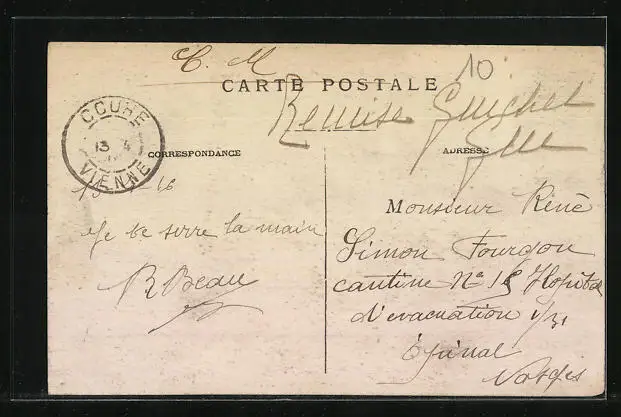 C. M
10
CARTE POSTALE
Remise Guichet
COUHE
13 4
VIENNE
CORRESPONDANCE
ADRESSE
16
Je te serre la main
R Beau
Monsieur René
Simon Fourgon
cantine No 15 Hopital
d'evacuation 1/31
Épinal
Vosges